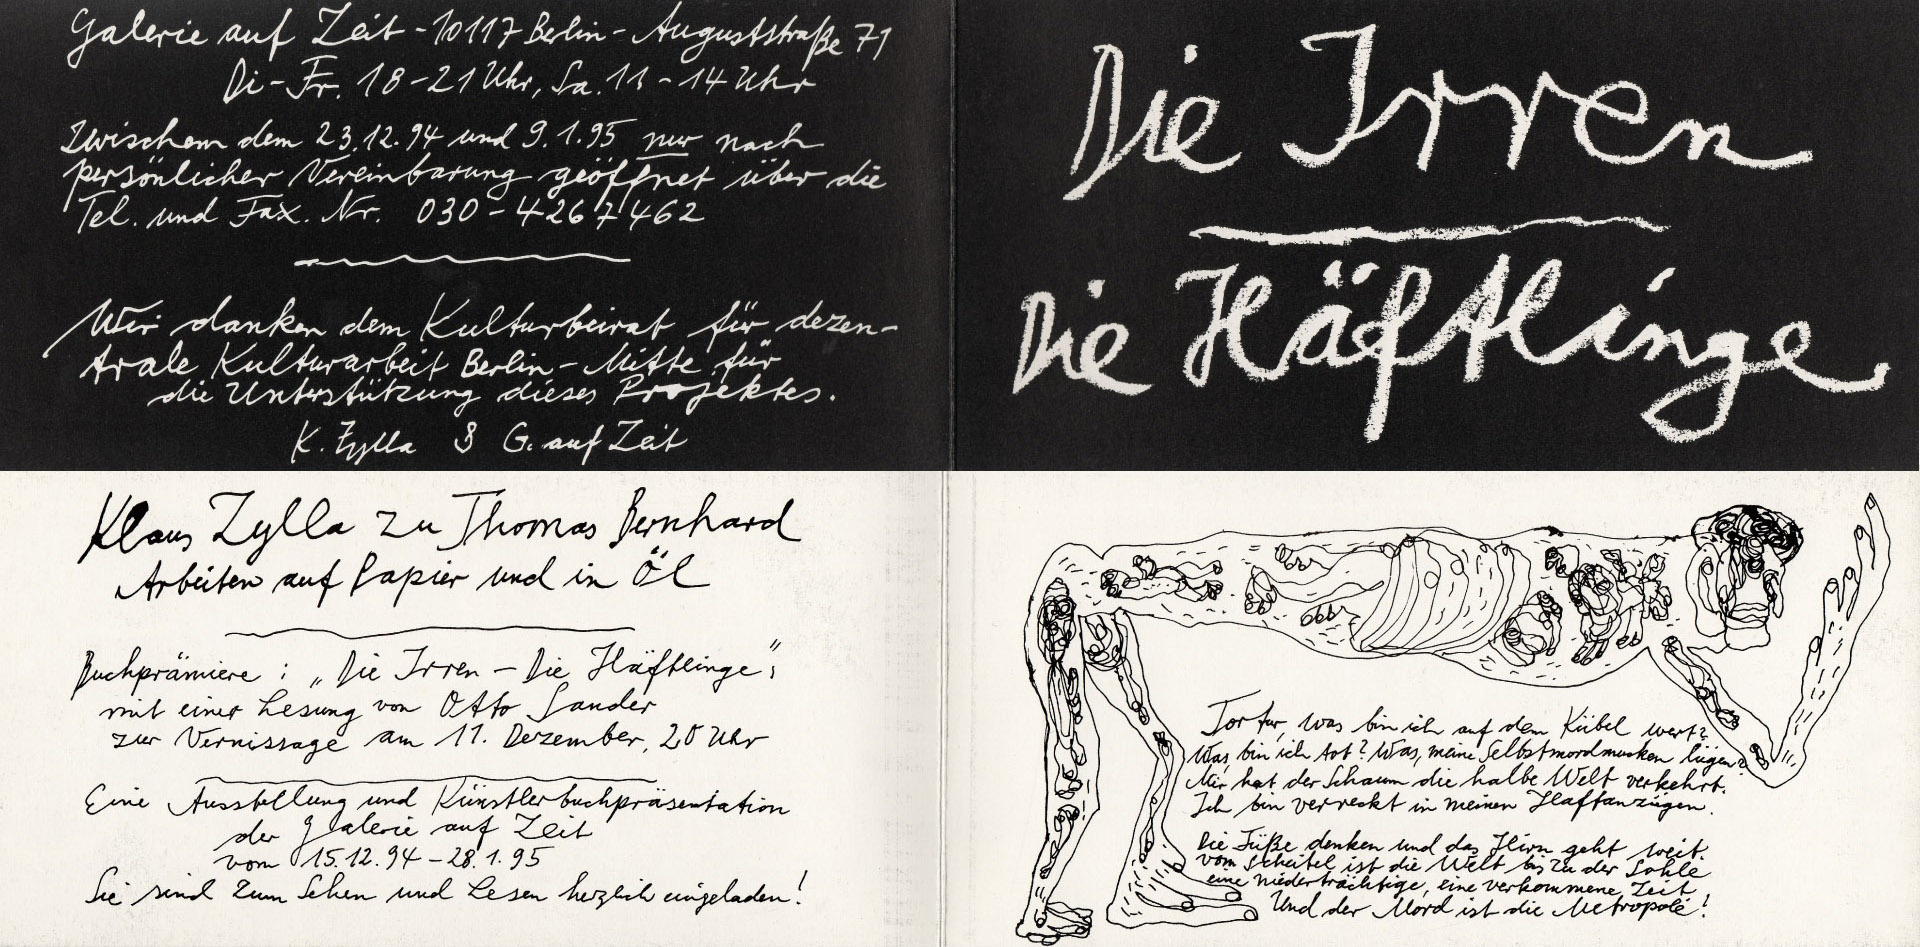 Galerie auf Zeit - 10117 Berlin - Auguststraße 71
Di - Fr. 18 - 21 Uhr, Sa. 11 - 14 Uhr
Zwischen dem 23.12.94 und 9.1.95 nur nach
persönlicher Vereinbarung geöffnet über die
Tel. und Fax. Nr. 030 - 4267462
Wir danken dem Kulturbeirat für dezen-
trale Kulturarbeit Berlin - Mitte für
die Unterstützung dieses Projektes.
K. Zylla & G. auf Zeit
Die Irren
Die Häftlinge
Klaus Zylla zu Thomas Bernhard
Arbeiten auf Papier und in Öl
Buchprämiere : „Die Irren – Die Häftlinge";
mit einer Lesung von Otto Sander
zur Vernissage am 11. Dezember, 20 Uhr
Eine Ausstellung und Künstlerbuchpräsentation
der Galerie auf Zeit
vom 15.12.94 - 28.1.95
Sie sind zum Sehen und Lesen herzlich eingeladen!
Tortur, was bin ich auf dem Kübel wert?
Was, bin ich tot? Was, meine Selbstmordmucken lügen?
Mir hat der Schaum die halbe Welt verkehrt.
Ich bin verreckt in meinen Haftanzügen.
Die Füße denken und das Hirn geht weit.
vom Scheitel ist die Welt bis zu der Sohle
eine niederträchtige, eine verkommene Zeit
Und der Mord ist die Metropole!